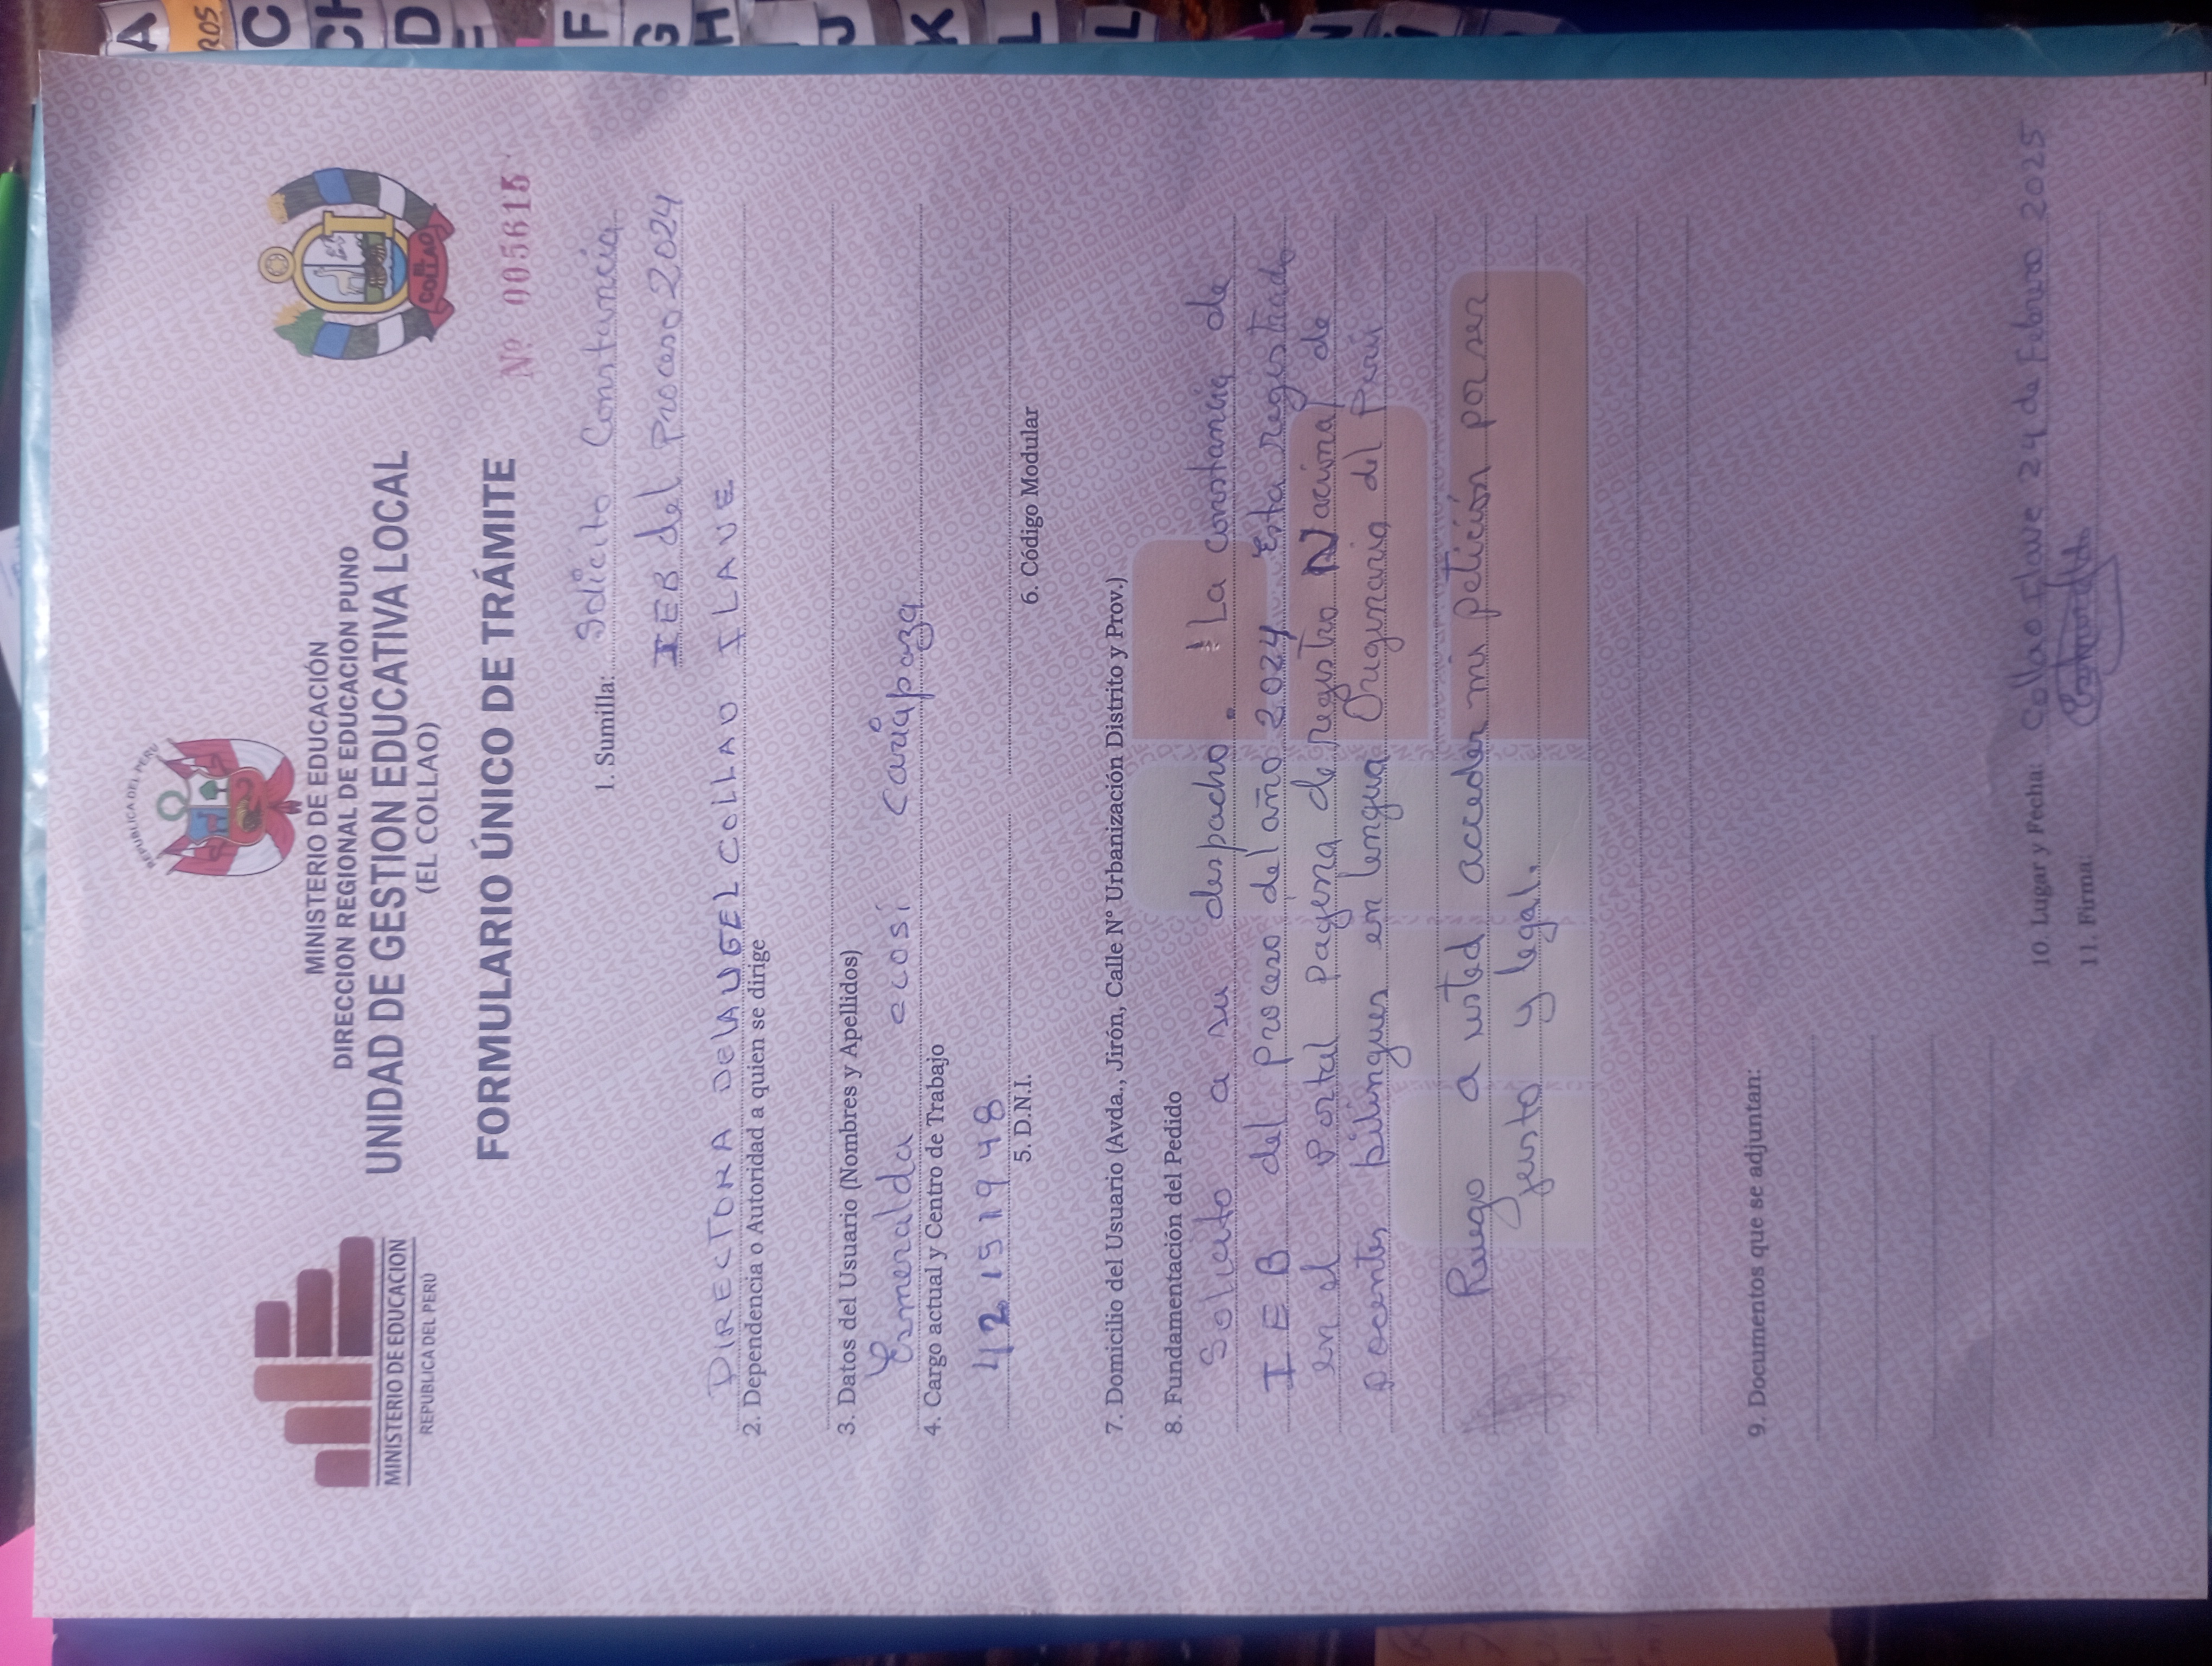 REPUBLICA DEL PERÚ
MINISTERIO DE EDUCACIÓN
DIRECCION REGIONAL DE EDUCACION PUNO
UNIDAD DE GESTION EDUCATIVA LOCAL
(EL COLLAO)
MINISTERIO DE EDUCACION
REPUBLICA DEL PERÚ
EL COLLAO
FORMULARIO ÚNICO DE TRÁMITE
Nº 005615
1. Sumilla: Solicito Constancia
IEB del Proceso 2024
DIRECTORA De lA UGEL COLLAO ILAVE
2. Dependencia o Autoridad a quien se dirige
3. Datos del Usuario (Nombres y Apellidos)
Esmeralda ccosi cariapaza
4. Cargo actual y Centro de Trabajo
42151948
5. D.N.I.
6. Código Modular
7. Domicilio del Usuario (Avda., Jirón, Calle Nº Urbanización Distrito y Prov.)
8. Fundamentación del Pedido
Solicito a su despacho. La constancia de
IEB del Proceso del año 2024 Esta registrado
en el Portal Pagina de registro Nacional de
Docentes bilingues en lengua Originaria del Perú
Ruego a usted acceder mi petición por ser
justo y legal.
9. Documentos que se adjuntan:
10. Lugar y Fecha: Collao Ilave 24 de Febrero 2025
11. Firma:
A
ROS
C
CH
D
F
G
H
J
K
L
L